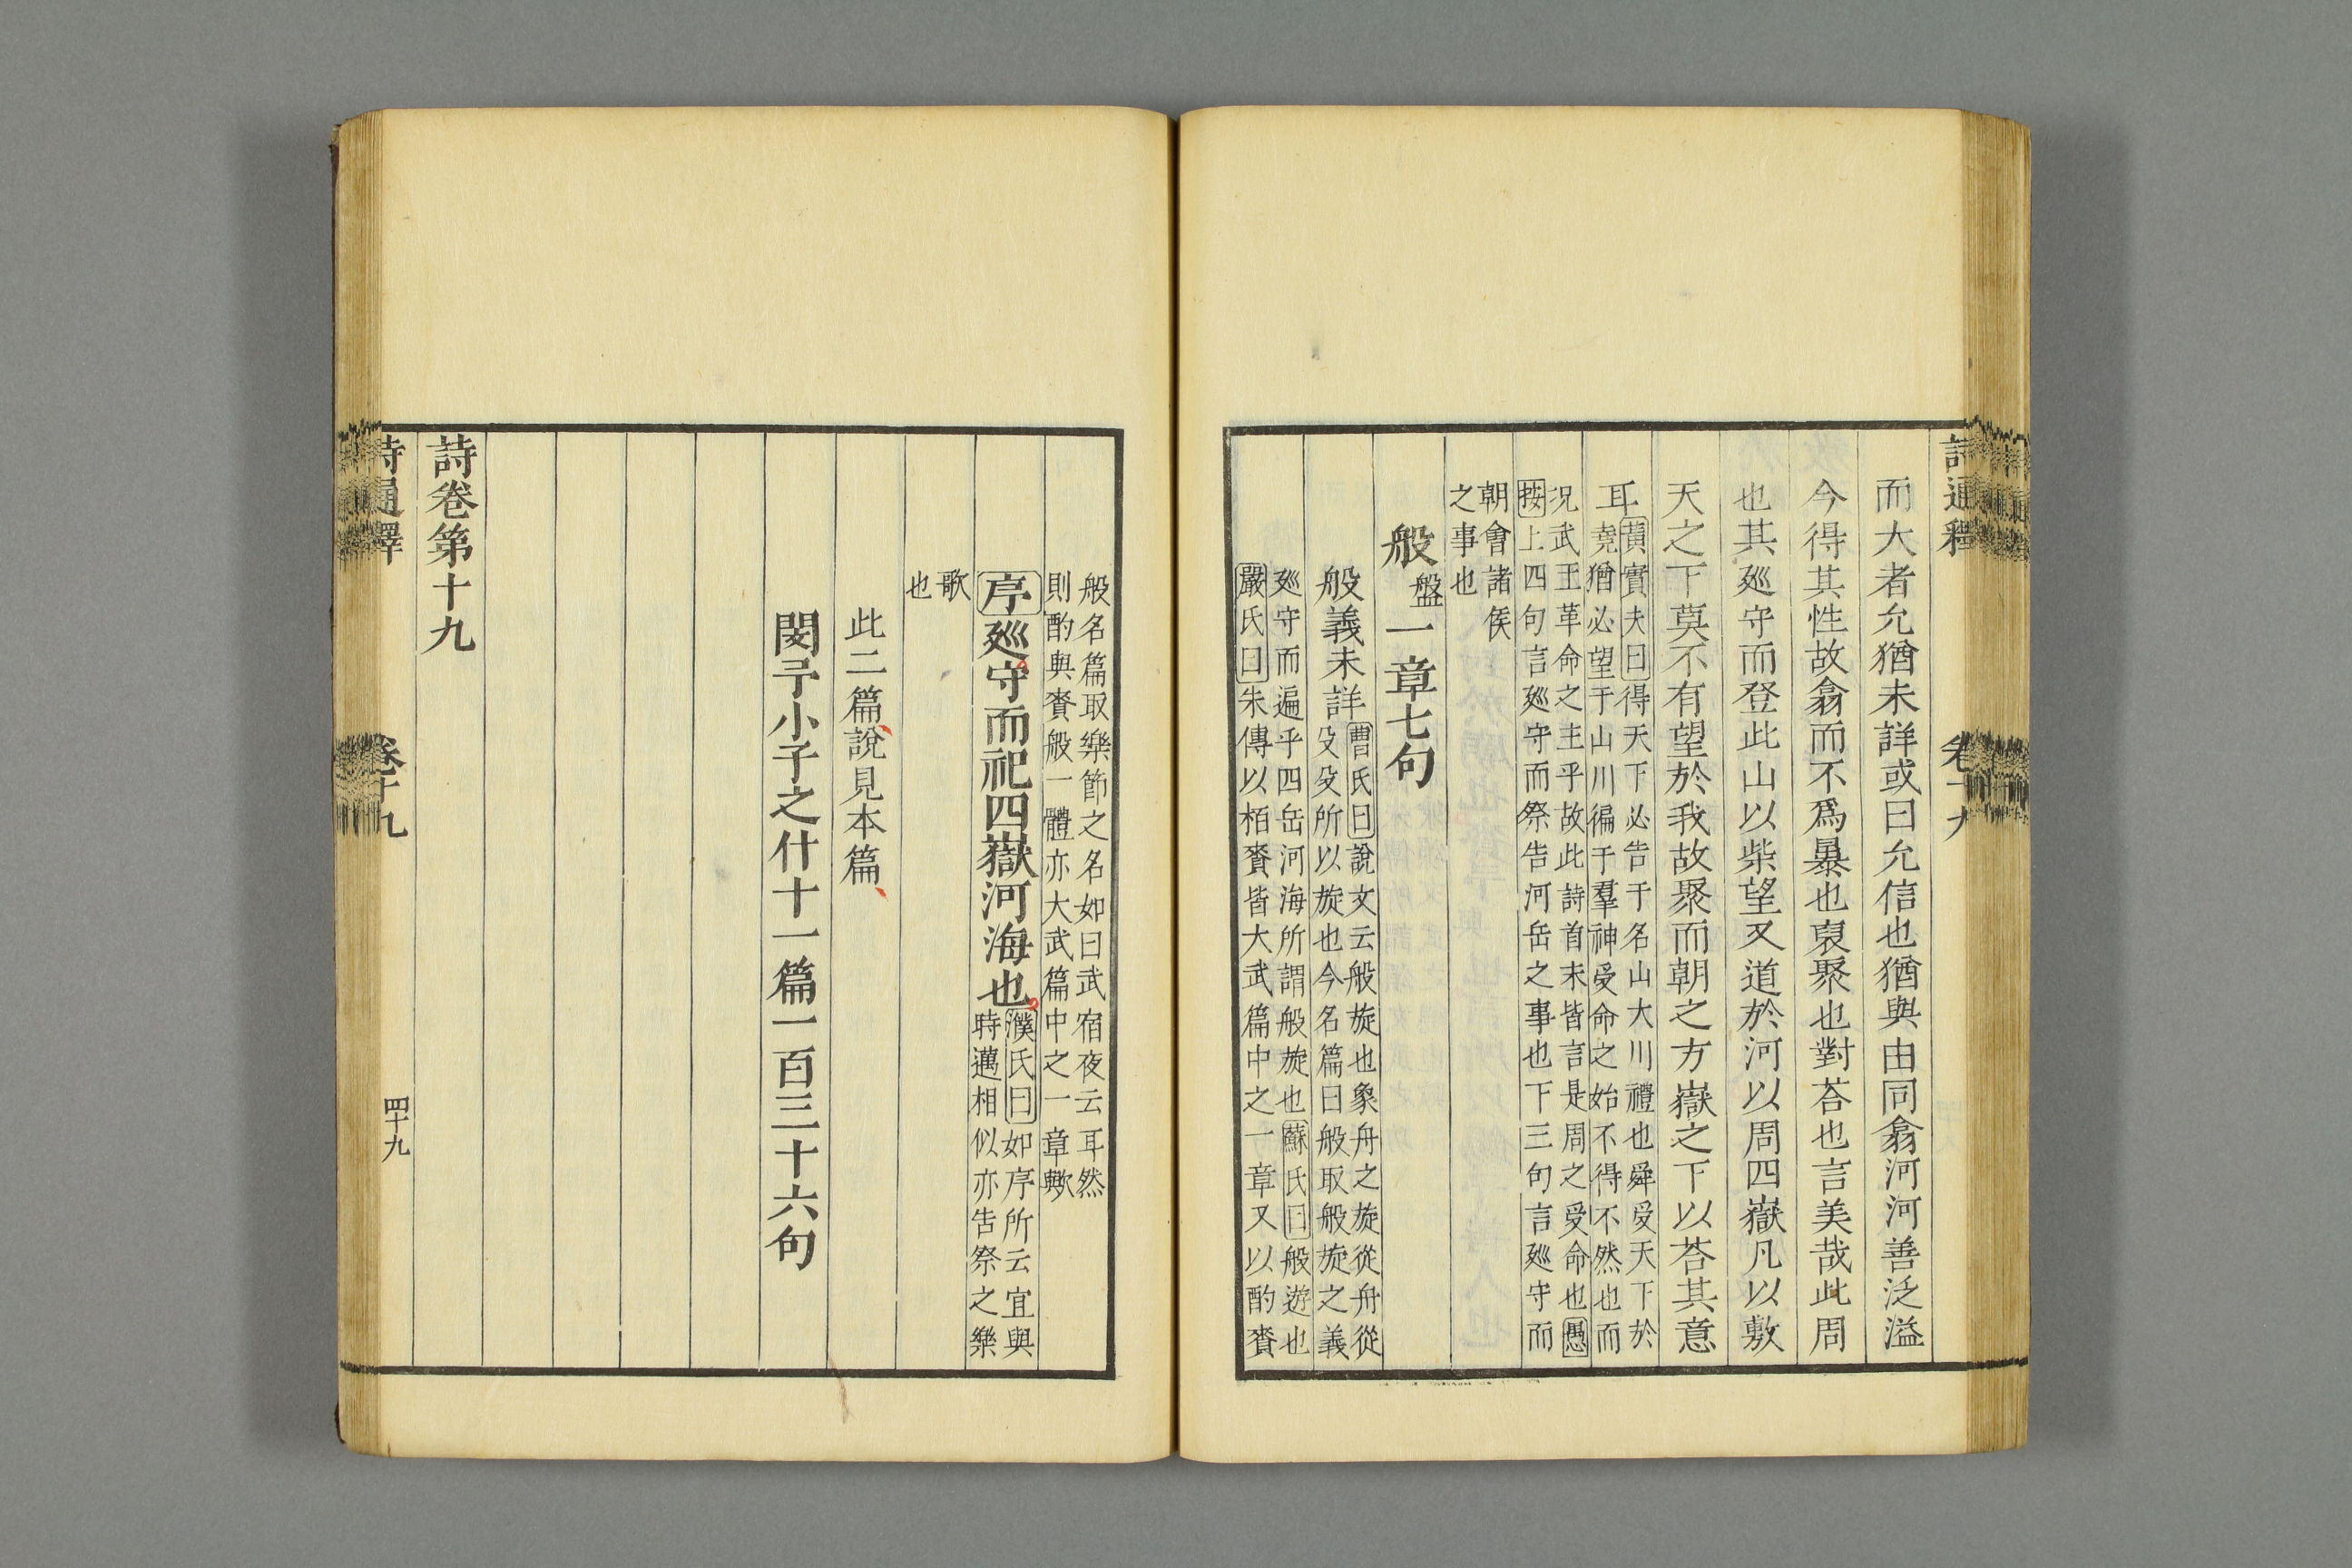 詩通釋 卷十九
而大者允猶未詳或曰允信也猶與由同翕河河善泛溢
今得其性故翕而不爲暴也裒聚也對荅也言美哉此周
也其廵守而登此山以柴望又道於河以周四嶽凡以敷
天之下莫不有望於我故聚而朝之方嶽之下以荅其意
耳
黄實夫曰得天下必告于名山大川禮也舜受天下於
堯猶必望于山川徧于羣神受命之始不得不然也而
况武王革命之主乎故此詩首末皆言是周之受命也愚
按上四句言廵守而祭告河岳之事也下三句言廵守而
朝會諸侯
之事也
般盤一章七句
般義未詳
曹氏曰說文云般旋也象舟之旋從舟從
殳殳所以旋也今名篇曰般取般旋之義
廵守而遍乎四岳河海所謂般旋也蘇氏曰般遊也
嚴氏曰朱傳以栢賚皆大武篇中之一章又以酌賚
般名篇取樂節之名如曰武宿夜云耳然
則酌與賚般一體亦大武篇中之一章歟
序廵守而祀四嶽河海也
濮氏曰如序所云宜與
時邁相似亦告祭之樂
歌
也
此二篇說見本篇
閔予小子之什十一篇一百三十六句
詩卷第十九
詩通釋 卷十九 四十九